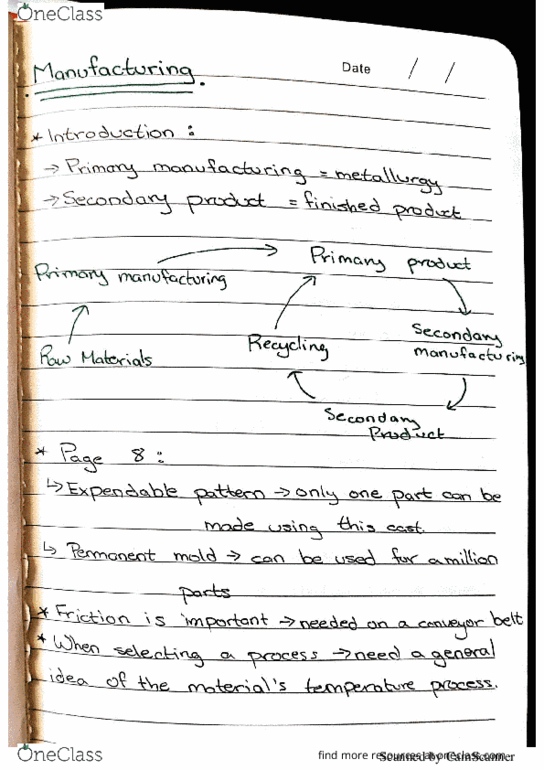 OneClass
Manufacturing.
Date / /
* Introduction :
→ Primary manufacturing = metallurgy
→ Secondary product = finished product
Primary product
Primary manufacturing
Secondary
manufacturing
Recycling
Raw Materials
Secondary
Product
* Page 8 :
↳ Expendable pattern → only one part can be
made using this cast.
↳ Permanent mold → can be used for a million
parts
* Friction is important → needed on a conveyor belt
* When selecting a process → need a general
idea of the material's temperature process.
OneClass
find more resources at oneclass.com
Scanned by CamScanner